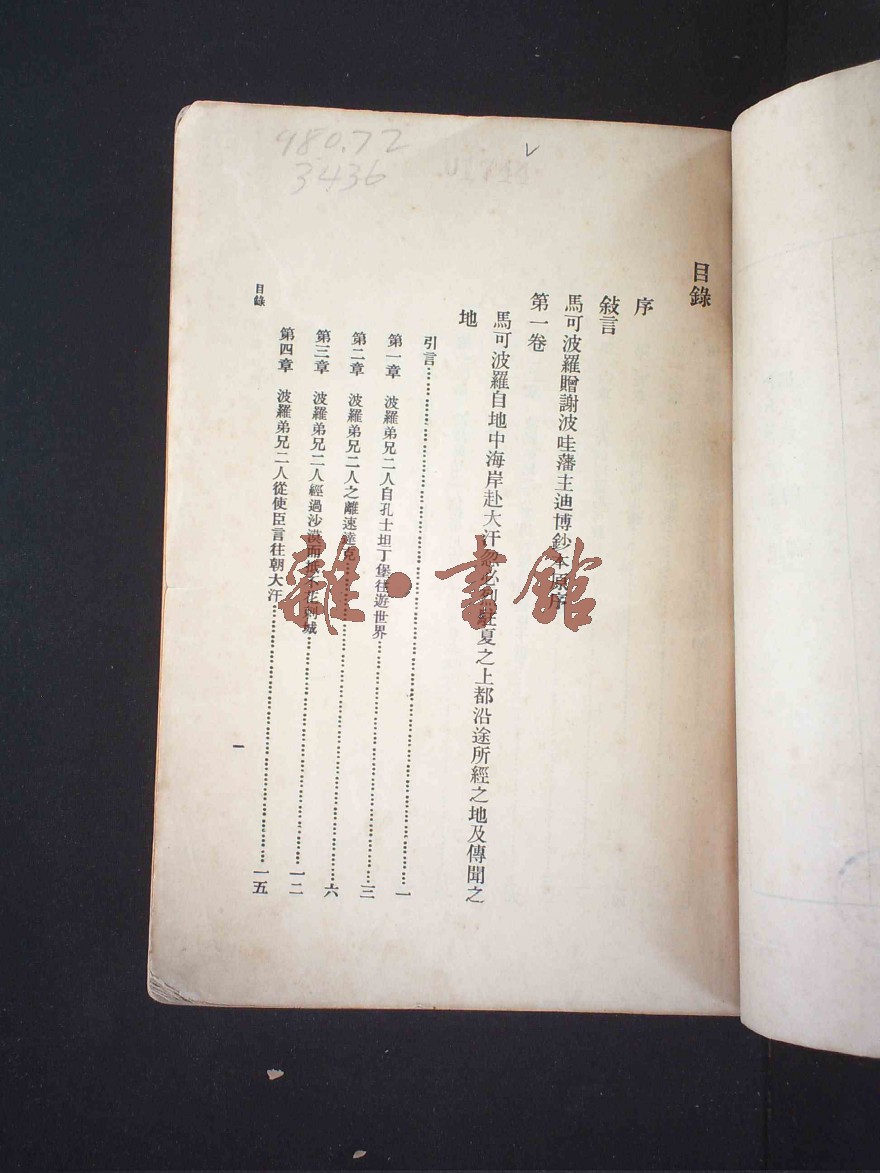 980.72
3436
目錄
序
敍言
馬可波羅贈謝波哇藩主迪博鈔本原序
第一卷
馬可波羅自地中海岸赴大汗忽必烈駐夏之上都沿途所經之地及傳聞之
地
引言……一
第一章 波羅弟兄二人自孔士坦丁堡往遊世界……三
第二章 波羅弟兄二人之離速達克……六
第三章 波羅弟兄二人經過沙漠而抵不花剌城……一二
第四章 波羅弟兄二人從使臣言往朝大汗……一五
目錄
一
雜·書館